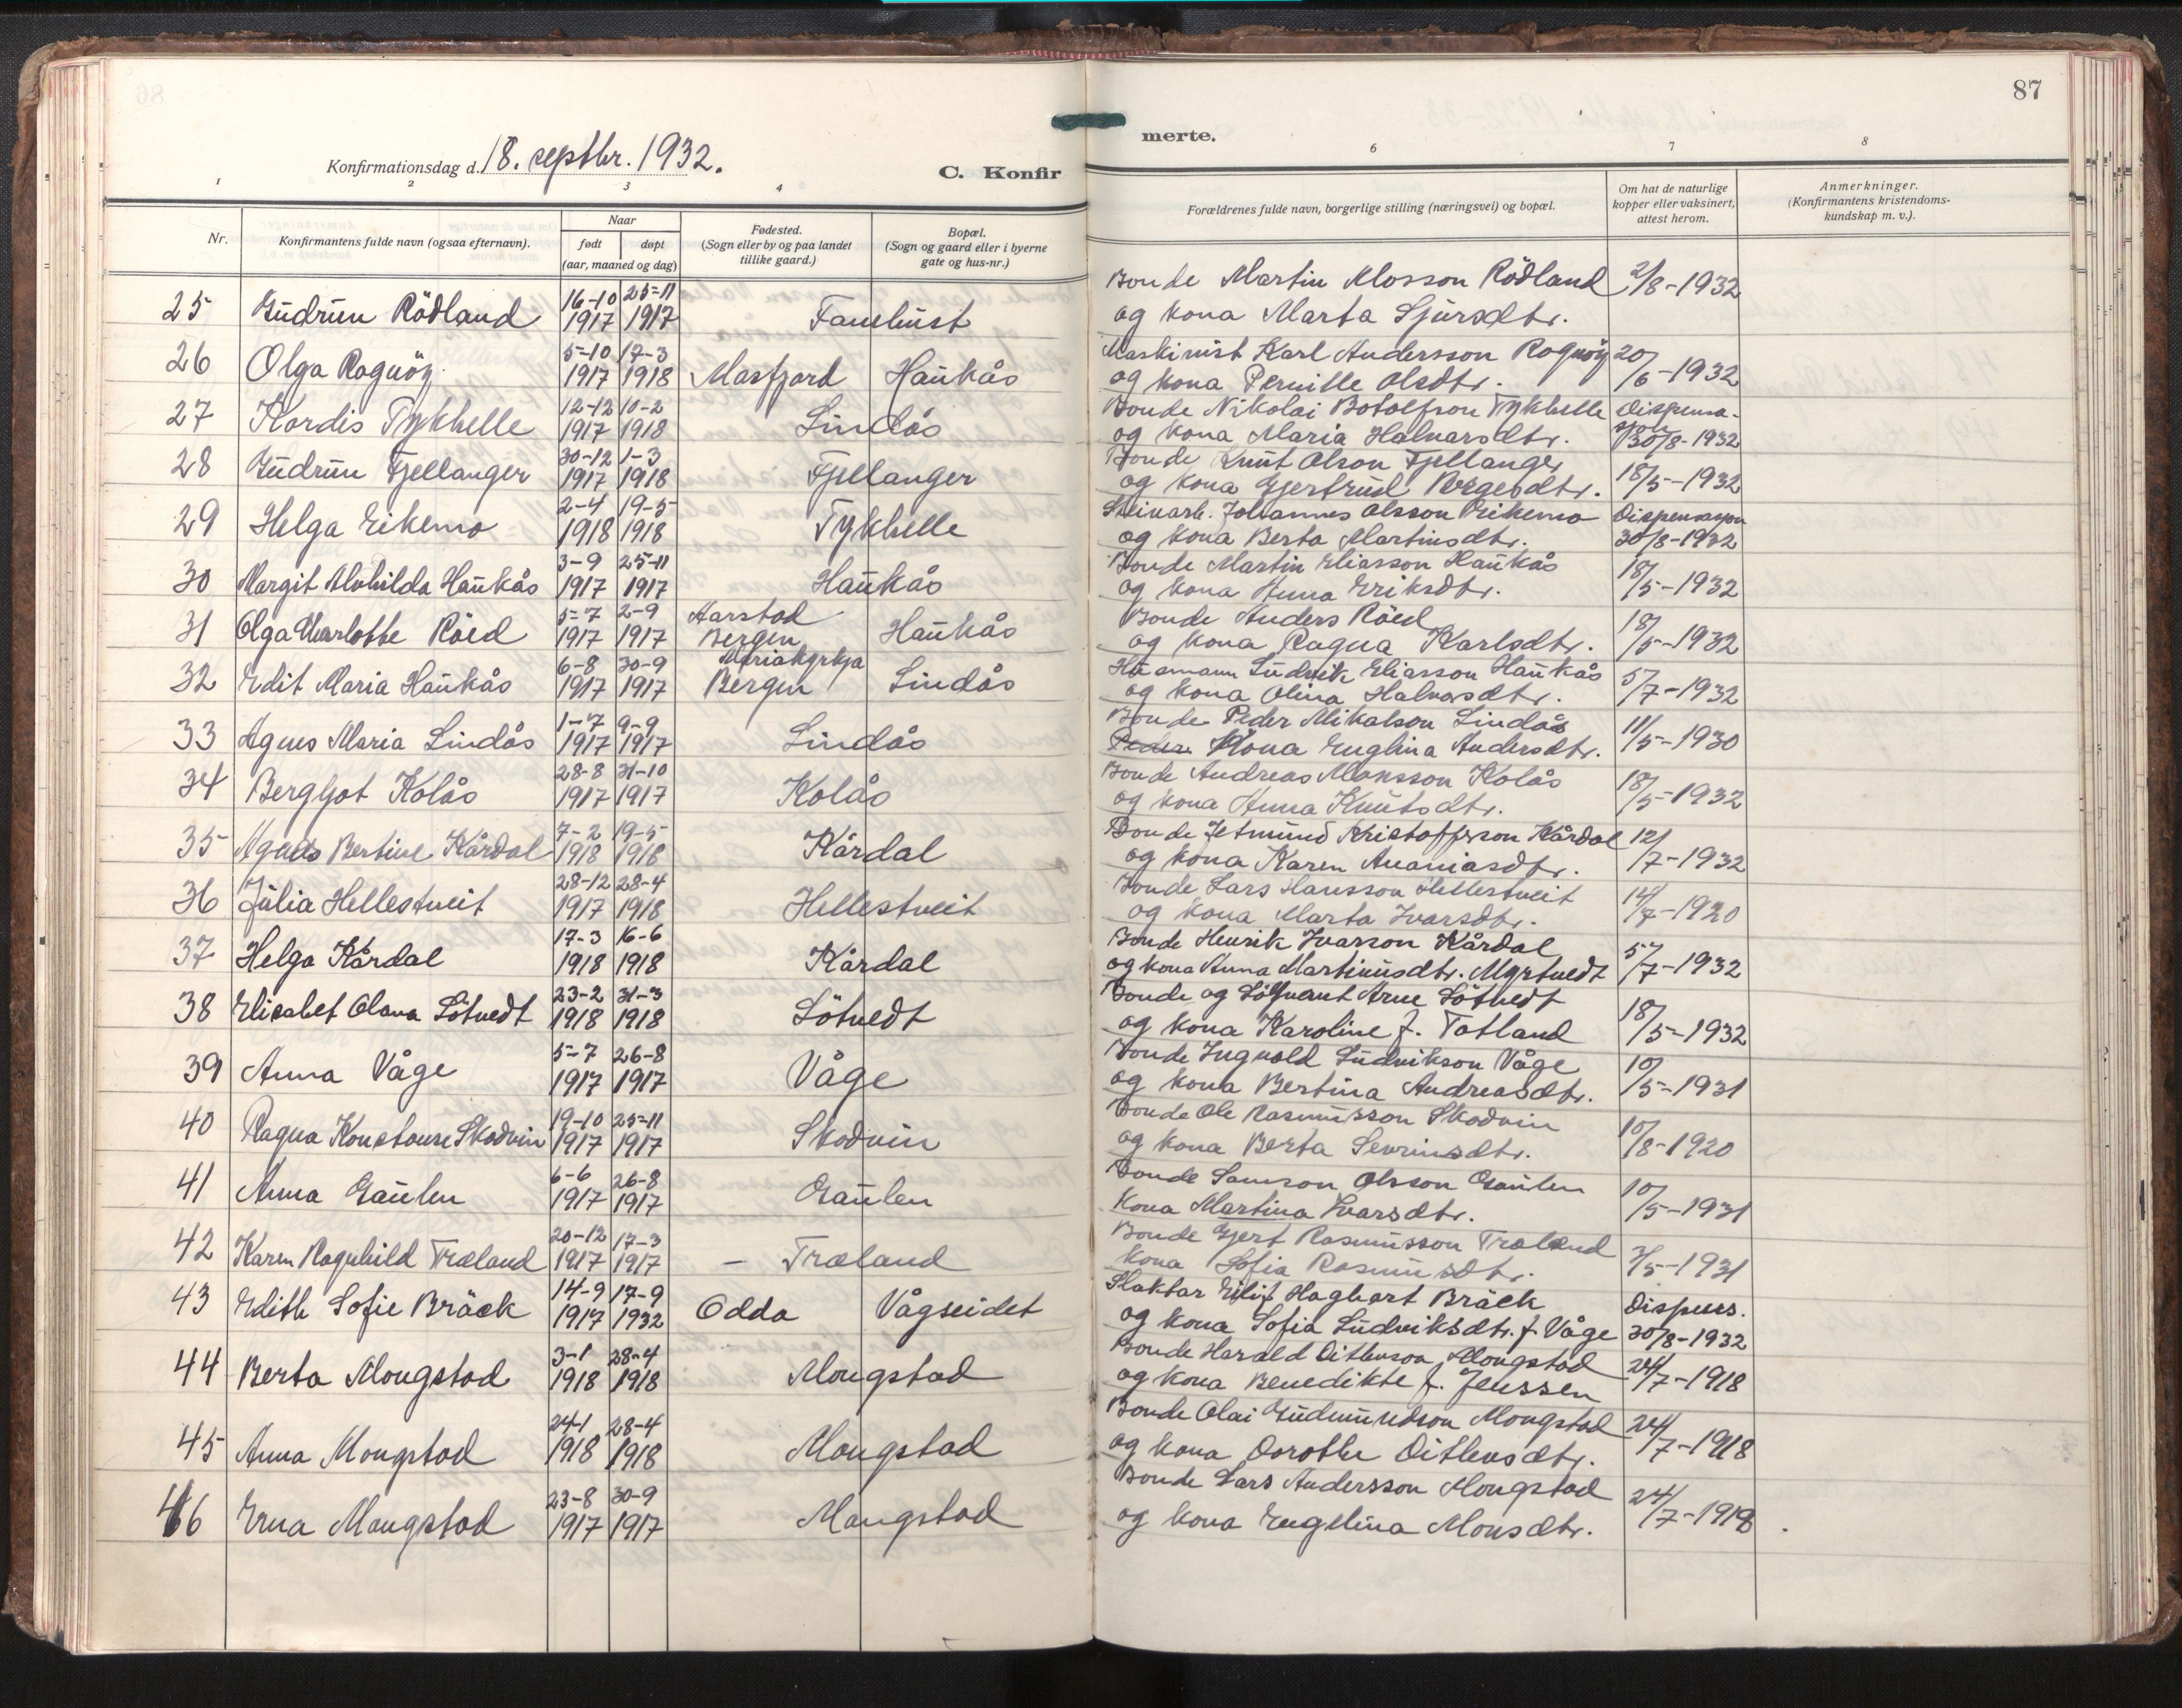 87
Konfirmationsdag d. 18. septbr. 1932.
C. Konfir
merte.
1 2 3 4
6 7 8
Nr.
Konfirmantens fulde navn (ogsaa efternavn).
Naar
født døpt
(aar, maaned og dag)
Fødested.
(Sogn eller by og paa landet
tillike gaard.)
Bopæl.
(Sogn og gaard eller i byerne
gate og hus-nr.)
Forældrenes fulde navn, borgerlige stilling (næringsvei) og bopæl.
Om hat de naturlige
kopper eller vaksinert,
attest herom.
Anmerkninger.
(Konfirmantens kristendoms-
kundskap m. v.).
25 Gudrun Rödland 16-10 1917 25-11 1917 Fanehust
Bonde Martin Monsson Rödland 2/8-1932
og kona Marta Sjursdtr.
26 Olga Ragnöy 5-10 1917 17-3 1918 Masfjord Haukås
Maskinist Karl Andersson Ragnöy 20/6-1932
og kona Pernille Olsdtr.
27 Hordis Tykhelle 12-12 1917 10-2 1918 Lindås
Bonde Nikolai Botolfson Tykhelle Dispensa-
og kona Maria Halvarsdtr. sjon 30/8-1932
28 Gudrun Fjellanger 30-12 1917 1-3 1918 Fjellanger
Bonde Knut Olson Fjellanger
og kona Gjertrud Børgesdtr. 18/5-1932
29 Helga Eikemo 2-4 1918 19-5 1918 Tykhelle
Steinarb. Johannes Olsson Eikemo Dispensasjon
og kona Berta Martinsdtr. 30/8-1932
30 Margit Alvhilda Haukås 3-9 1917 25-11 1917 Haukås
Bonde Martin Eliasson Haukås
og kona Anna Eriksdtr. 18/5-1932
31 Olga Charlotte Röed 5-7 1917 2-9 1917 Aarstad Bergen Haukås
Bonde Anders Röed
og kona Ragna Karlsdtr. 18/5-1932
32 Edit Maria Haukås 6-8 1917 30-9 1917 Mariakyrkja Bergen Lindås
Husmann Ludvik Eliasson Haukås
og kona Olina Halvarsdtr. 5/7-1932
33 Agnes Maria Lindås 1-7 1917 9-9 1917 Lindås
Bonde Peder Mikalson Lindås
Peder Kona Englina Andersdtr. 11/5-1930
34 Bergljot Kolås 28-8 1917 31-10 1917 Kolås
Bonde Andreas Monsson Kolås
og kona Anna Knutsdtr. 18/5-1932
35 Agnes Bertine Kårdal 7-2 1918 19-5 1918 Kårdal
Bonde Jetmund Kristofferson Kårdal
og kona Karen Ananiasdtr. 12/7-1932
36 Julia Hellestveit 28-12 1917 28-4 1918 Hellestveit
Bonde Lars Hansson Hellestveit
og kona Marta Ivarsdtr. 14/7-1920
37 Helga Kårdal 17-3 1918 16-6 1918 Kårdal
Bonde Henrik Ivarson Kårdal
og kona Anna Martinusdtr. Myrtvedt 5/7-1932
38 Elisabet Olava Sötvedt 23-2 1918 31-3 1918 Sötvedt
Bonde og Arne Sötvedt
og kona Karoline f. Totland 18/5-1932
39 Anna Våge 5-7 1917 26-8 1917 Våge
Bonde Ingvald Ludvikson Våge
og kona Bertina Andreasdtr. 10/5-1931
40 Ragna Konstanse Skodvin 19-10 1917 25-11 1917 Skodvin
Bonde Ole Rasmusson Skodvin
og kona Berta Sevrinsdtr. 10/8-1920
41 Anna Gaulen 6-6 1917 26-8 1917 Gaulen
Bonde Samson Olsson Gaulen
kona Martina Ivarsdtr. 10/5-1931
42 Karen Ragnhild Træland 20-12 1917 17-3 1917 – Træland
Bonde Gjert Rasmusson Træland
kona Sofia Rasmusdtr. 31/5-1931
43 Edith Sofie Bräck 14-9 1917 17-9 1932 Odda Vågseidet
Slaktar Eilif Hagbart Bräck Dispens.
og kona Sofia Ludviksdtr. f. Våge 30/8-1932
44 Berta Mongstad 3-1 1918 28-4 1918 Mongstad
Bonde Harald Ditlevson Mongstad
og kona Benedikte f. Jenssen 24/7-1918
45 Anna Mongstad 24-1 1918 28-4 1918 Mongstad
Bonde Olai Gudmundson Mongstad
og kona Dorothe Ditlevsdtr. 24/7-1918
46 Erna Mongstad 23-8 1917 30-9 1917 Mongstad
Bonde Lars Andersson Mongstad
og kona Engelina Monsdtr. 24/7-1918